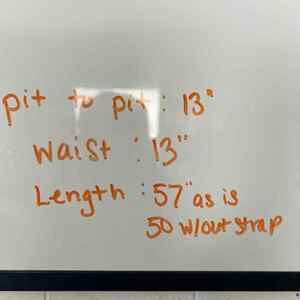 pit to pit : 13"
waist : 13"
Length : 57" as is
50 w/out strap